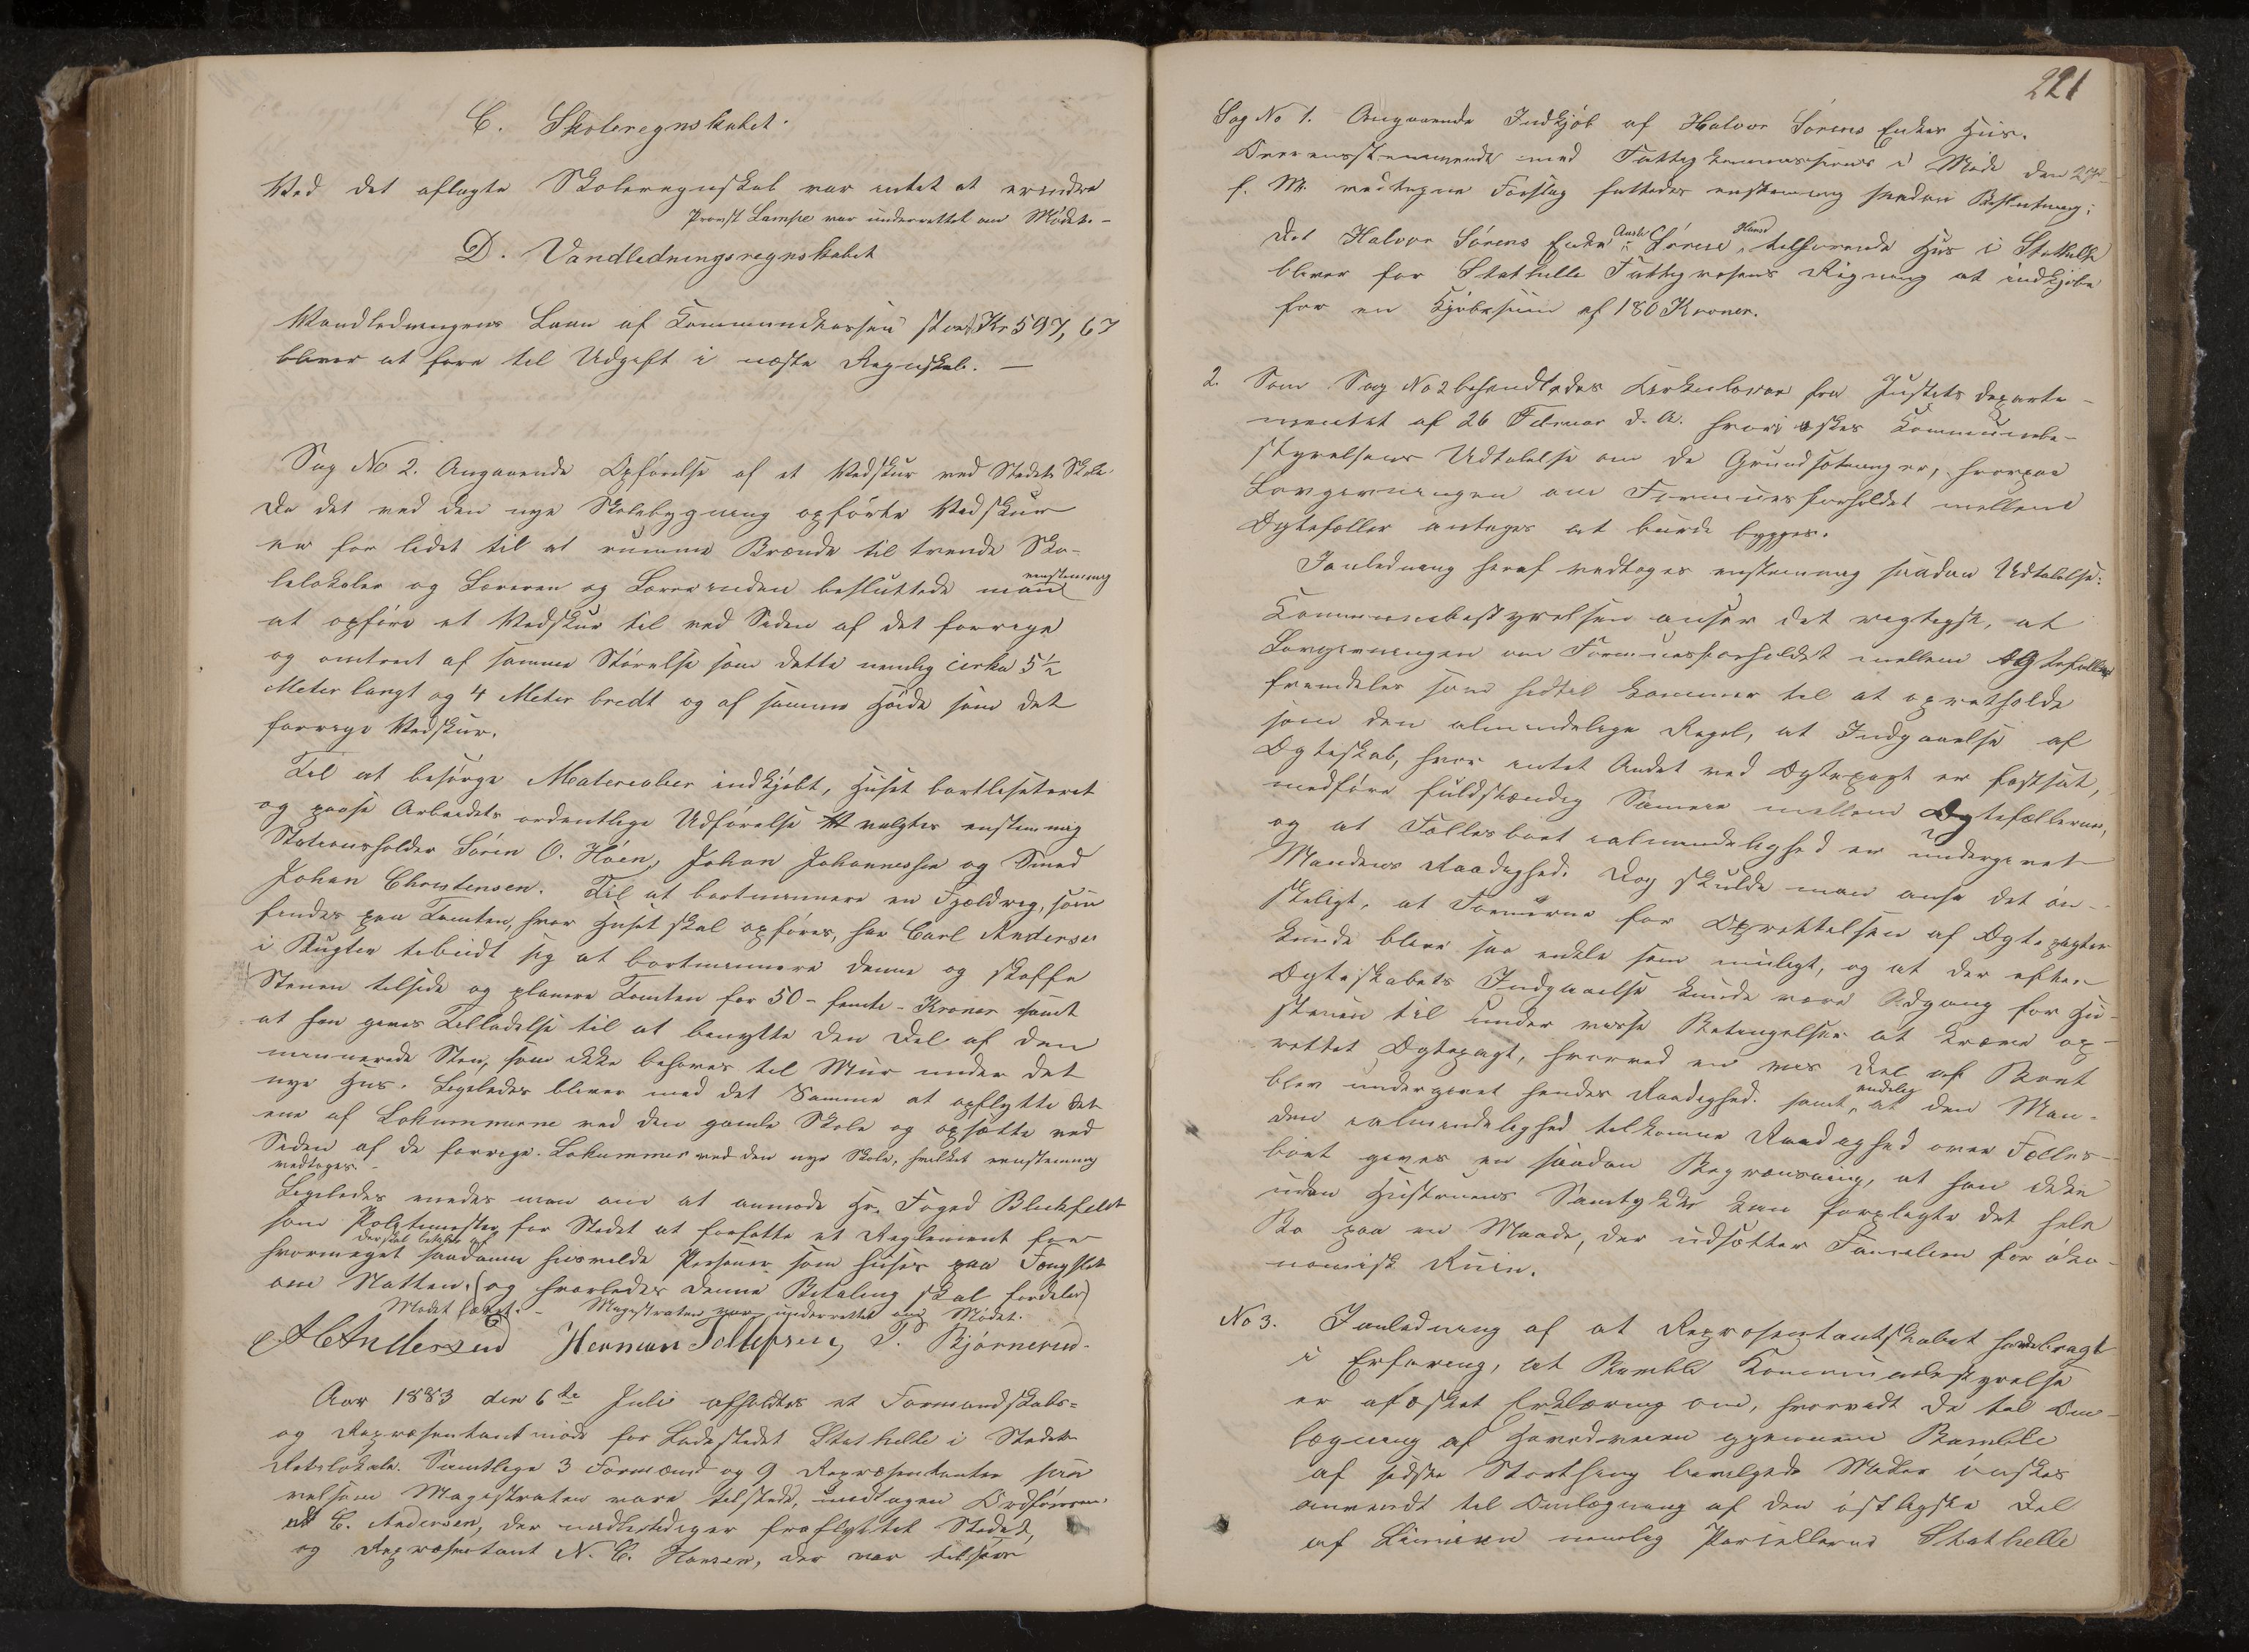 C. Skoleregnskabet.
Ved det aflagte Skoleregnskab var intet at erindre
Provst Lampe var underrettet om Mødet. –
D. Vandledningsregnskabet
Vandledningens Laan af Kommunekassen stort Kr 597,67
bliver at føre til Udgift i næste Regnskab. –
Sag No 2. Angaaende Opførelse af et Vedskur ved Stedets Skole.
Da det ved den nye Skolebygning opførte Vedskur
er for lidet til at rumme Brænde til trende Sko-
lelokaler og Læreren og Lærerinden besluttede man enstemmig
at opføre et Vedskur til ved Siden af det forrige
og omtrent af samme Størrelse som dette nemlig cirka 5½
Meter langt og 4 Meter bredt og af samme Høide som det
forrige Vedskur.
Til at besørge Materialier indkjøbt, Huset bortliciteret
og paase Arbeidets ordentlige Udførelse valgtes enstemmig
Stationsholder Søren O. Høen, Johan Johannessen og Smed
Johan Christensen. Til at bortminere en Fjeldryg, som
findes paa Tomten, hvor Huset skal opføres, har Carl Andersen
i Bugten tilbudt sig at bortminere denne og skaffe
Stenen tilside og planere Tomten for 50 – femti – Kroner samt
at han gives Tilladelse til at benytte den Del af den
minerede Sten, som ikke behøves til Mur under det
nye Hus. Ligeledes bliver med det Samme at opflytte det
ene af Lokummerne ved den gamle Skole og opsætte ved
Siden af de forrige Lokummer ved den nye Skole, hvilket enstemmig
vedtoges. –
Ligeledes enedes man om at anmode Hr. Foged Blichfeldt
som Politimester for Stedet at forfatte et Reglement for
hvormeget der skal betales af saadanne husvilde Personer som huses paa Fængslet
om Natten. (og hvorledes denne Betaling skal fordeles)
Mødet hævet. – Magistraten var underrettet om Mødet.
A C Anderssen Herman Tollefsen, P. Bjørnerud.
Aar 1883 den 6te Juli afholdtes et Formandskabs-
og Repræsentantmøde for Ladestedet Stathelle i Stedets
Retslokale. Samtlige 3 Formænd og 9 Repræsentanter saa
velsom Magistraten vare tilstede, undtagen Ordføreren
A C. Andersen, der midlertidigen fraflyttet Stedet,
og Repræsentant N. C. Hansen, der var tilsøes
221
Sag No 1. Angaaende Indkjøb af Halvor Sørens Enkes Hus.
Overensstemmende med Fattigkommissionens i Møde den 27
f. M. vedtagne Forslag fattedes enstemmig saadan Beslutning:
Det Halvor Sørens Enke tilhørende Hus i Stathelle
bliver for Stathelle Fattigvæsens Regning at indkjøbe
for en Kjøbesum af 180 Kroner.
2. Som Sag No 2 behandledes Cirkulære fra Justits departe-
mentet af 26 Februar d. A. hvori æskes Kommunebe-
styrelsens Udtalelse om de Grundsætninger, hvorpaa
Lovgivningen om Formuesforholdet mellem
Ægtefæller antages at burde bygges.
I Anledning heraf vedtoges enstemmig saadan Udtalelse:
Kommunebestyrelsen anser det rigtigst, at
Lovgivningen om Formuesforholdet mellem Ægtefæller
fremdeles som hidtil kommer til at opretholde
som den almindelige Regel, at Indgaaelse af
Ægteskab, hvor intet Andet ved Ægtepagt er fastsat,
medfører fuldstændig Sameie mellem Ægtefællerne,
og at Fællesboet i almindelighed er undergivet
Mandens Raadighed. Dog skulde man anse det øn-
skeligt, at Formerne for Oprettelsen af Ægtepagter
kunde blive saa enkle som muligt, og at der efter
Ægteskabets Indgaaelse kunde være Adgang for Hu-
struen til under visse Betingelser at kræve op-
rettet Ægtepagt, hvorved en vis Del af Boet
blev undergivet hendes Raadighed. samt, endelig at den Man-
den i almindelighed tilkomne Raadighed over Fælles-
boet gives en saadan Begrænsning, at han ikke
uden Hustruens Samtykke kan forpligte det hele
Bo paa en Maade, der udsætter Familien for øko-
nomisk Ruin.
No 3. I Anledning af at Repræsentantskabet har bragt
i Erfaring, at Bamble Kommunebestyrelse
er afæsket Erklæring om, hvorvidt de til Om-
lægning af Hovedveien gjennem Bamble
af sidste Storthing bevilgede Midler ønskes
anvendt til Omlægning af den østligste Del
af Linien nemlig Parcellerne Stathelle